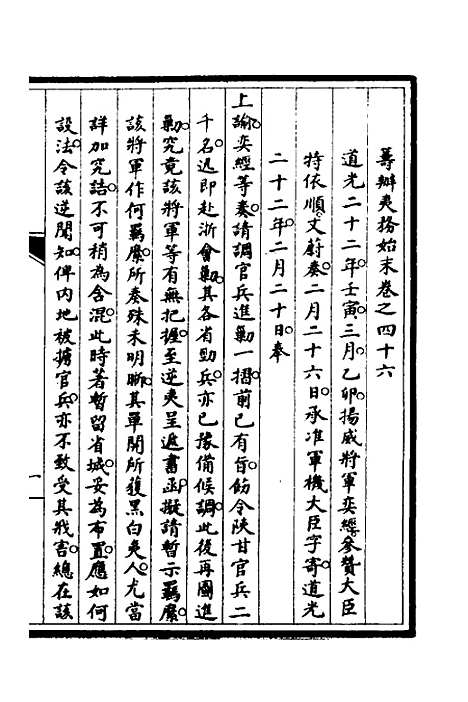 籌辦夷務始末卷之四十六
道光二十二年壬寅三月乙卯揚威將軍奕經參贊大臣
特依順文蔚奏二月二十六日承准軍機大臣字寄道光
二十二年二月二十日奉
上諭奕經等奏請調官兵進剿一摺前已有旨飭令陝甘官兵二
千名迅即赴浙會剿其各省勁兵亦已豫備候調此後再圖進
剿究竟該將軍等有無把握至逆夷呈遞書函擬請暫示羈縻
該將軍作何羈縻所奏殊未明晰其單開所獲黑白夷人尤當
詳加究詰不可稍為含混此時著暫留省城妥為布置應如何
設法令該逆聞知俾內地被擄官兵亦不致受其戕害總在該
一